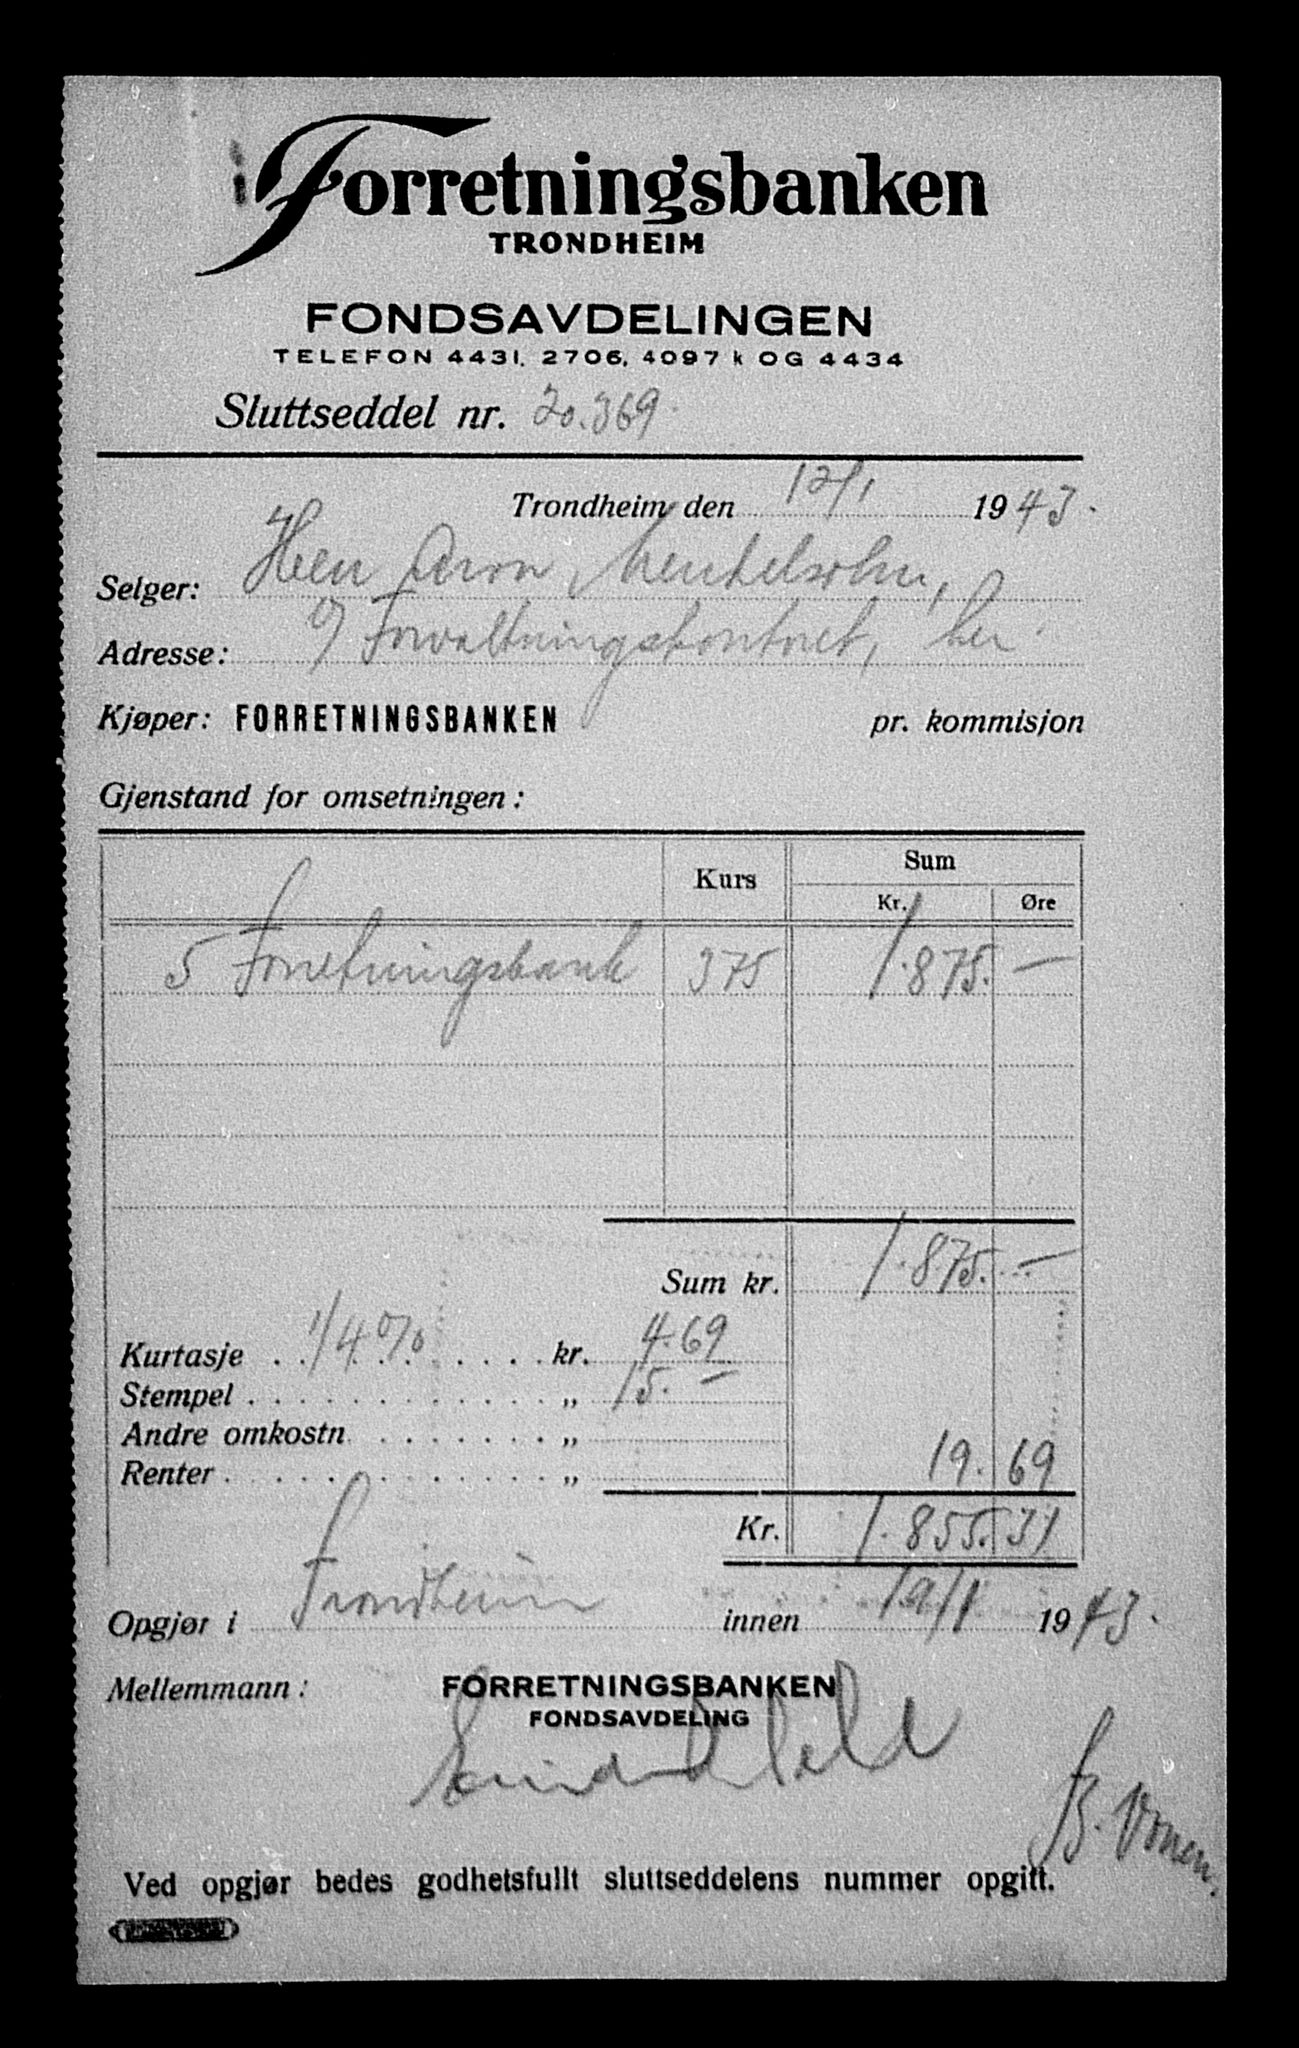 Forretningsbanken
TRONDHEIM
FONDSAVDELINGEN
TELEFON 4431, 2706, 4097 k OG 4434
Sluttseddel nr. 20.369.
Trondheim den 12/1 1943.
Selger: Herr Aron Mendelsohn,
Adresse: c/ Forvaltningskontoret, her.
Kjøper: FORRETNINGSBANKEN pr. kommisjon
Gjenstand for omsetningen:
Kurs Sum
Kr. Øre
5 Forretningsbank 375 1.875. —
Sum kr. 1.875. —
Kurtasje 1/4 % kr. 4.69
Stempel „ 15. —
Andre omkostn. „
Renter „ 19. 69
Kr. 1.855.31
Opgjør i Trondheim innen 19/1 1943.
Mellemmann: FORRETNINGSBANKEN
FONDSAVDELING
Ved opgjør bedes godhetsfullt sluttseddelens nummer opgitt.